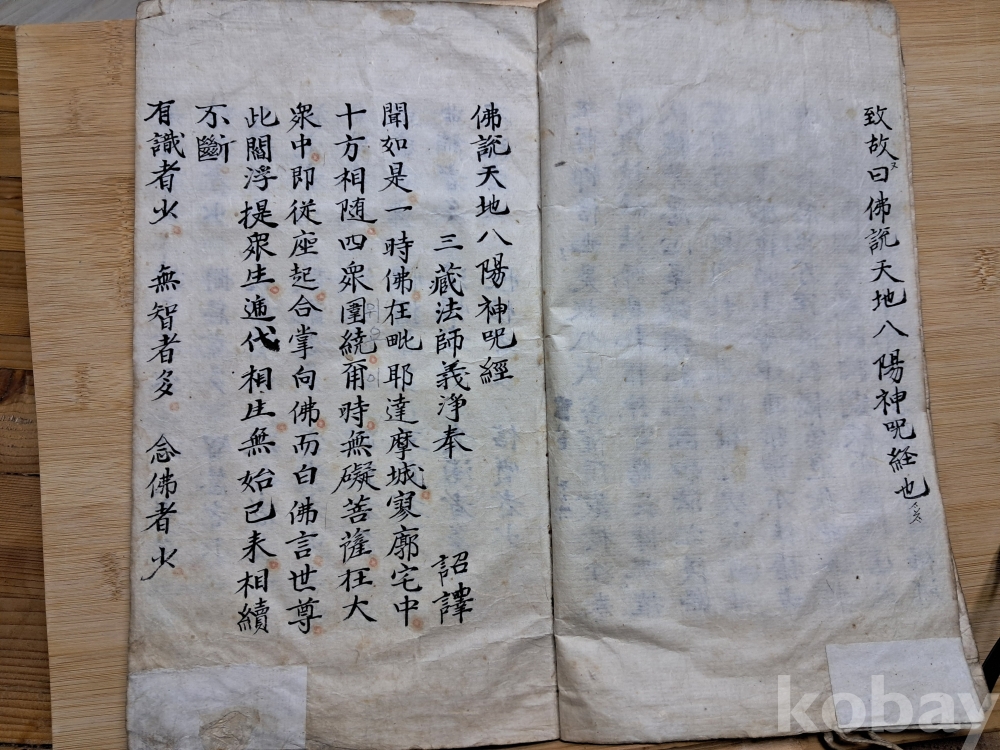 致故曰佛說天地八陽神呪経也
佛說天地八陽神呪經
三藏法師義淨奉 詔譯
聞如是一時佛在毗耶達摩城寥廓宅中
十方相随四衆圍繞爾時無礙菩薩在大
衆中即從座起合掌向佛而白佛言世尊
此閻浮提衆生逓代相生無始已来相續
不斷
有識者少 無智者多 念佛者少
위요이
kobay